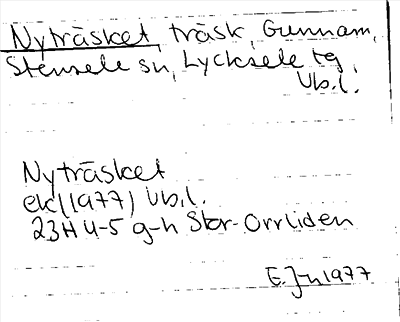 Nyträsket, träsk, Gunnarn,
Stensele sn, Lycksele tg
Vb.l.
Nyträsket
ek (1977) Vb.l.
23H 4-5 g-h Stor-Orrliden
E. J-n 1977